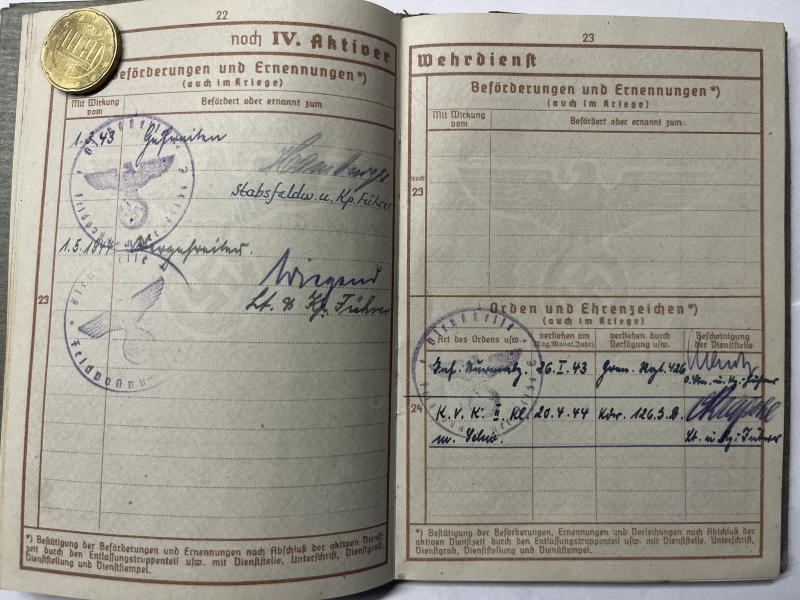 22
noch IV. Aktiver
Beförderungen und Ernennungen*)
(auch im Kriege)
Mit Wirkung vom
Befördert oder ernannt zum
1.3.43 Gefreiten
Stabsfeldw. u. Kp. Führer
1.5.1944 Obergefreiten.
Wiegend
Lt. & Kp. Führer
23
*) Bestätigung der Beförderungen und Ernennungen nach Abschluß der aktiven Dienst-
zeit durch den Entlassungstruppenteil usw. mit Dienststelle, Unterschrift, Dienstgrad,
Dienststellung und Dienststempel.
23
Wehrdienst
Beförderungen und Ernennungen*)
(auch im Kriege)
Mit Wirkung vom
Befördert oder ernannt zum
noch
23
Orden und Ehrenzeichen*)
(auch im Kriege)
Art des Ordens usw.
verliehen am (Tag, Monat, Jahr)
verliehen durch Verfügung usw.
Bescheinigung der Dienststelle
Inf. Sturmabz. 26.I.43 Gren. Rgt. 426
O.Lt. u. Kp. Führer
24
K.V.K. II. Kl. 20.4.44 Kdr. 126.J.D.
m. Schw. Lt. u. Kp. Führer
*) Bestätigung der Beförderungen, Ernennungen und Verleihungen nach Abschluß der
aktiven Dienstzeit durch den Entlassungstruppenteil usw. mit Dienststelle, Unterschrift,
Dienstgrad, Dienststellung und Dienststempel.